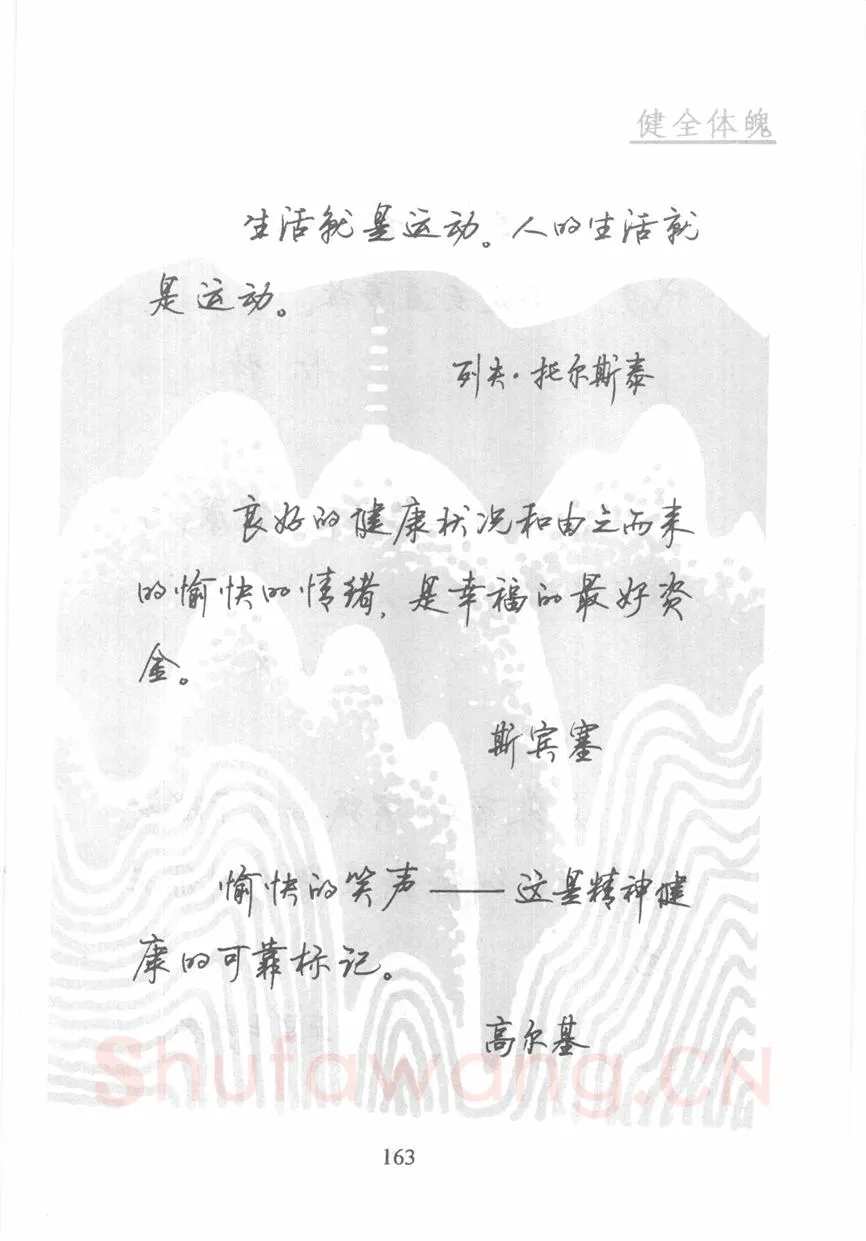 健全体魄
生活就是运动。人的生活就
是运动。
列夫·托尔斯泰
良好的健康状况和由之而来
的愉快的情绪,是幸福的最好资
金。
斯宾塞
愉快的笑声——这是精神健
康的可靠标记。
高尔基
Shufawang.CN
163